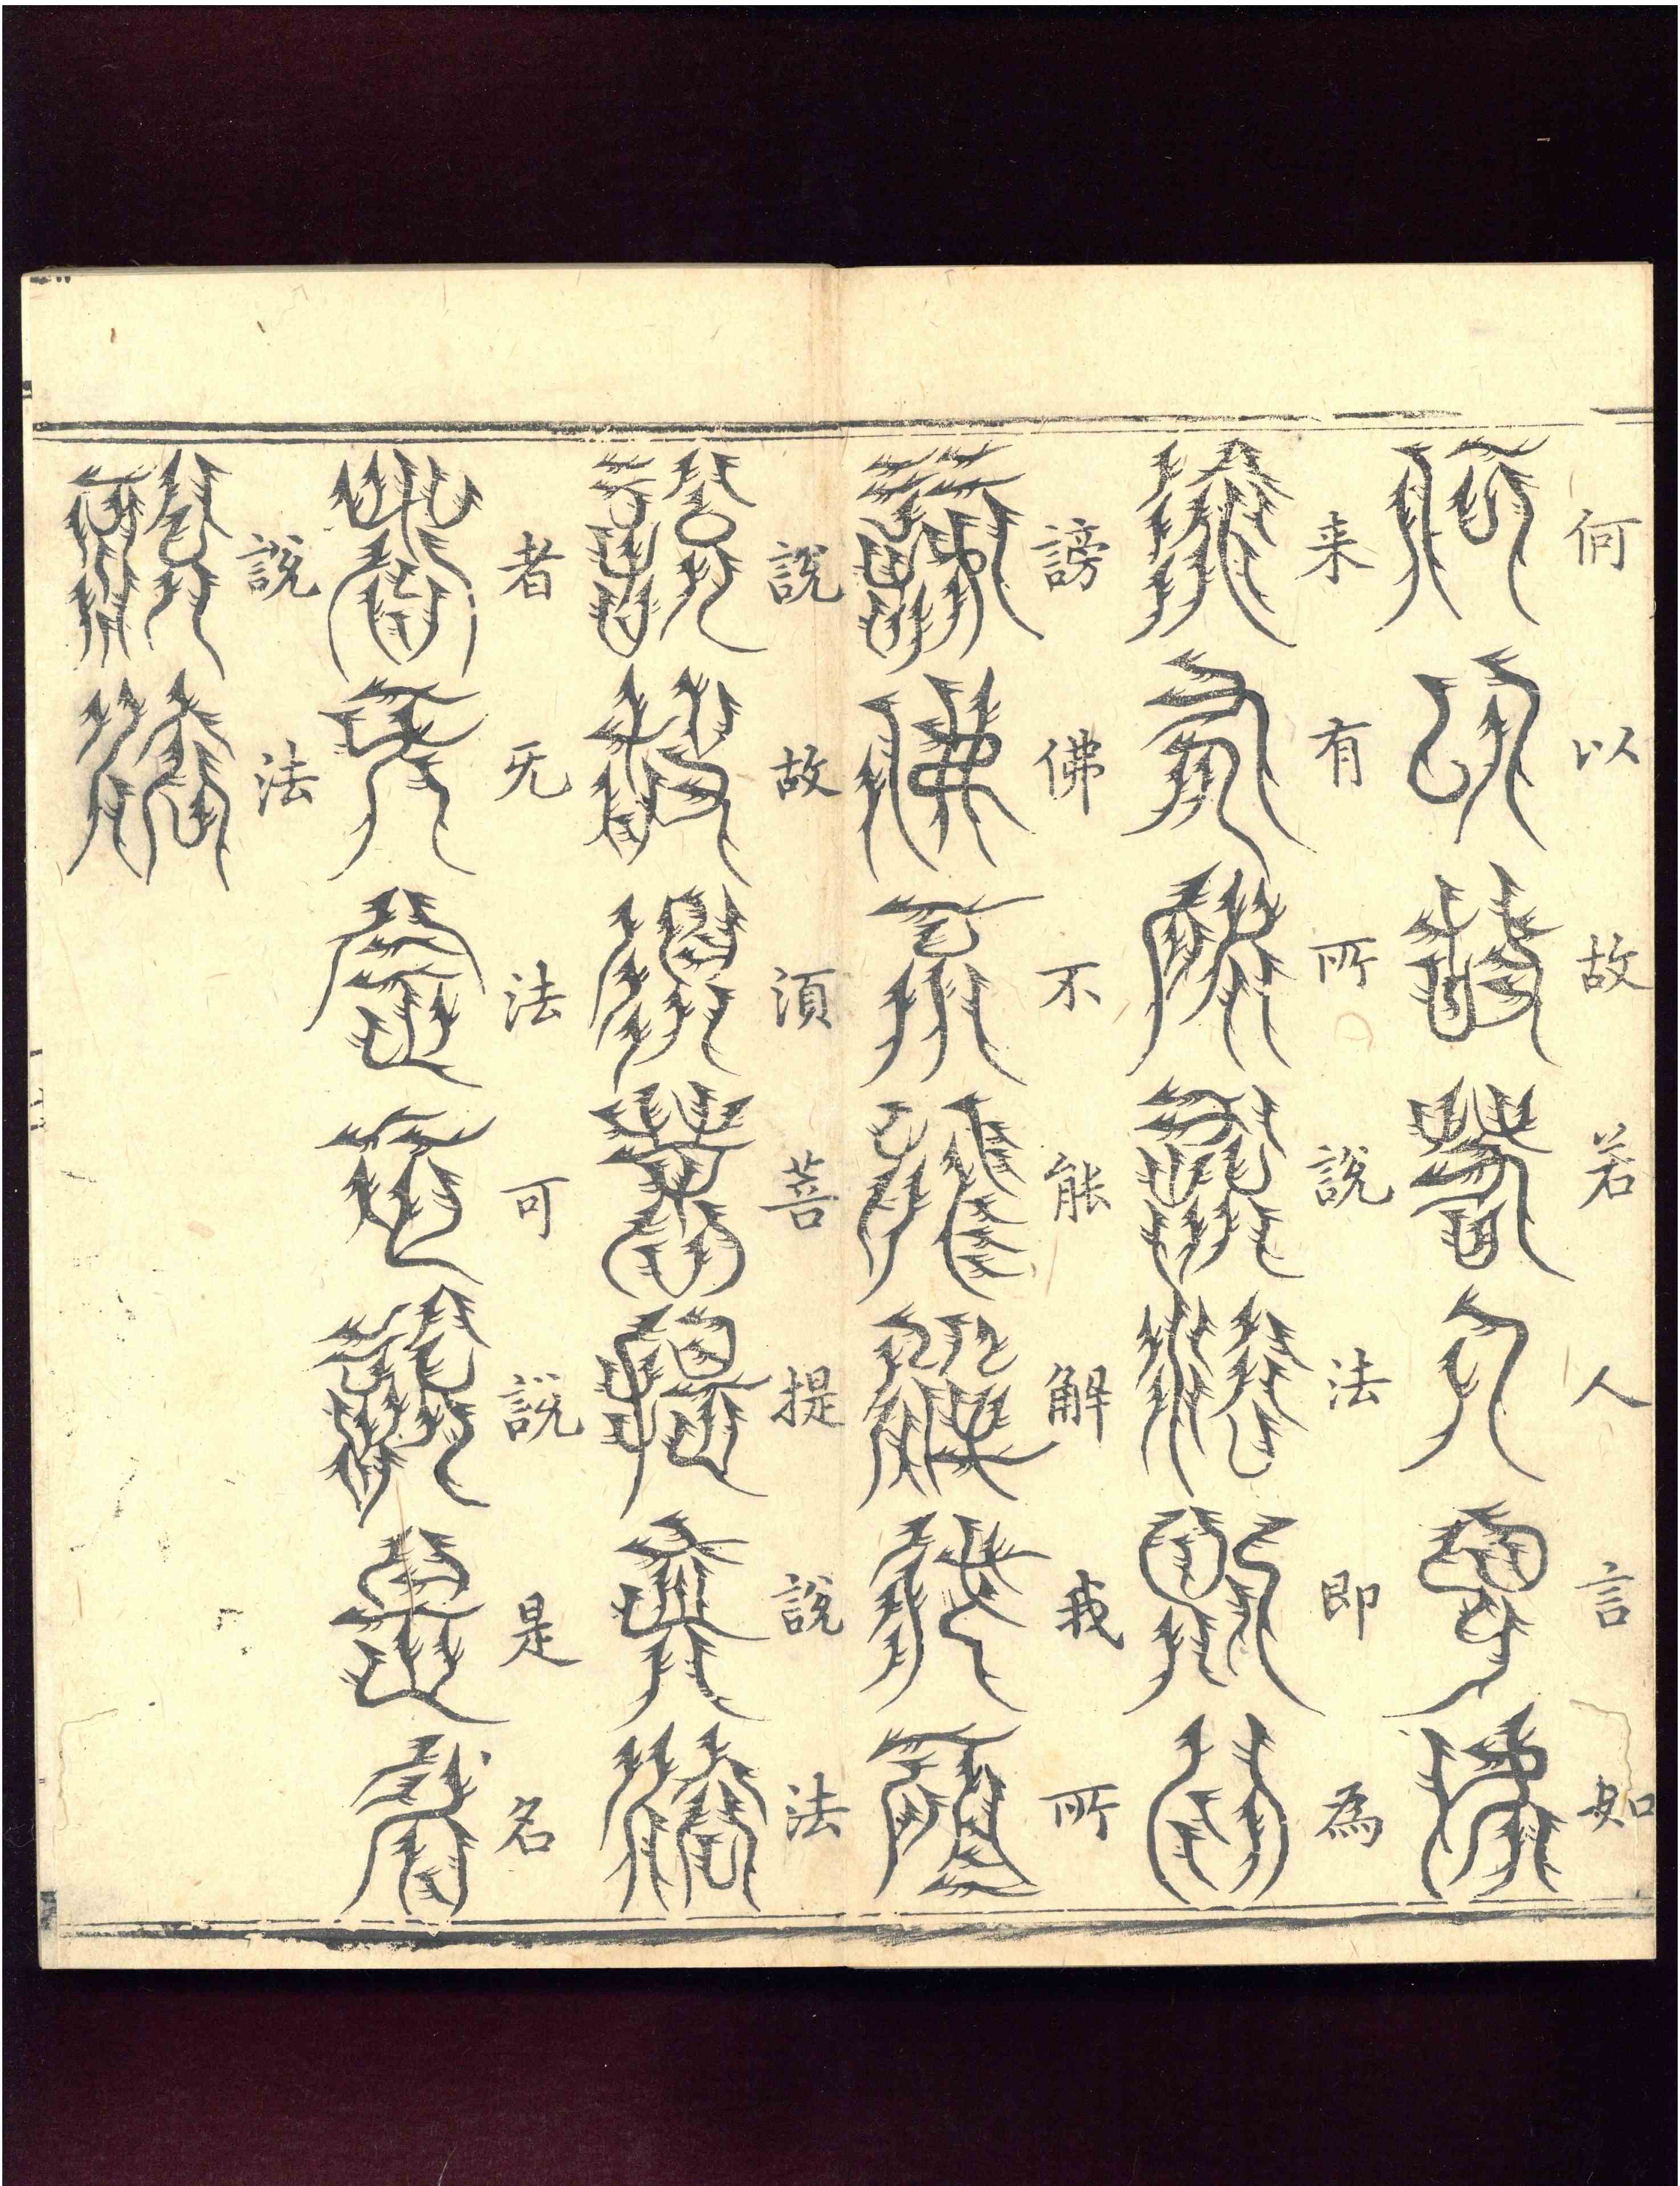 何以故若人言如
来有所說法即為
謗佛不能解我所
說故須菩提說法
者无法可說是名
說法